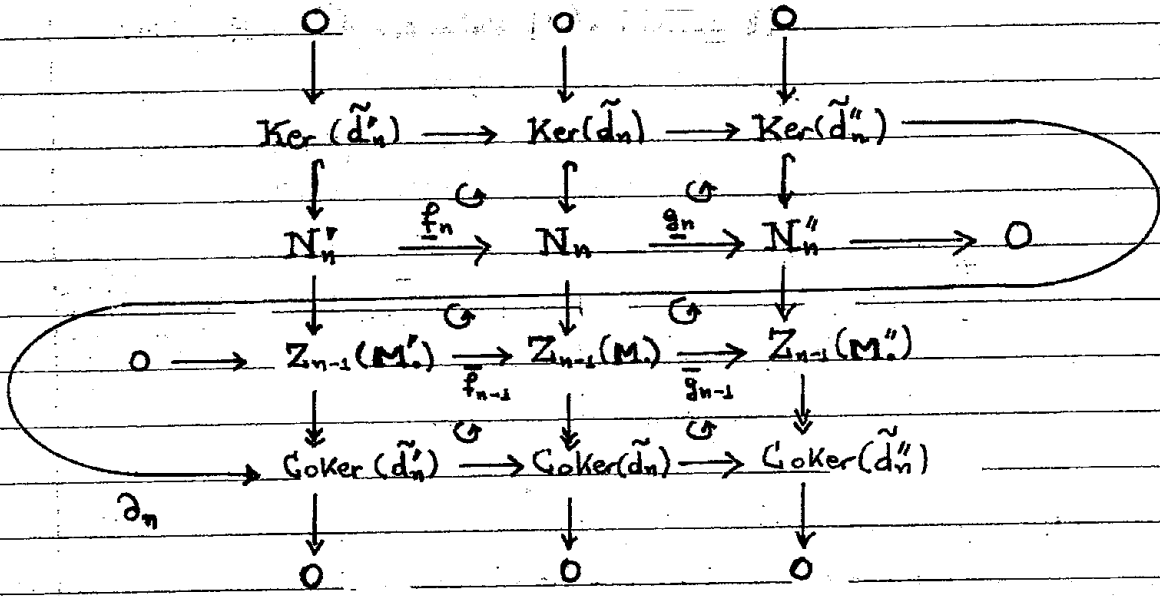 0 0 0
Ker(d̃'ₙ) → Ker(d̃ₙ) → Ker(d̃''ₙ)
N'ₙ →f̲ₙ Nₙ →g̲ₙ N''ₙ → 0
0 → Zₙ₋₁(M'.) →f̄ₙ₋₁ Zₙ₋₁(M.) →ḡₙ₋₁ Zₙ₋₁(M''.)
CoKer(d̃'ₙ) → CoKer(d̃ₙ) → CoKer(d̃''ₙ)
∂ₙ
0 0 0